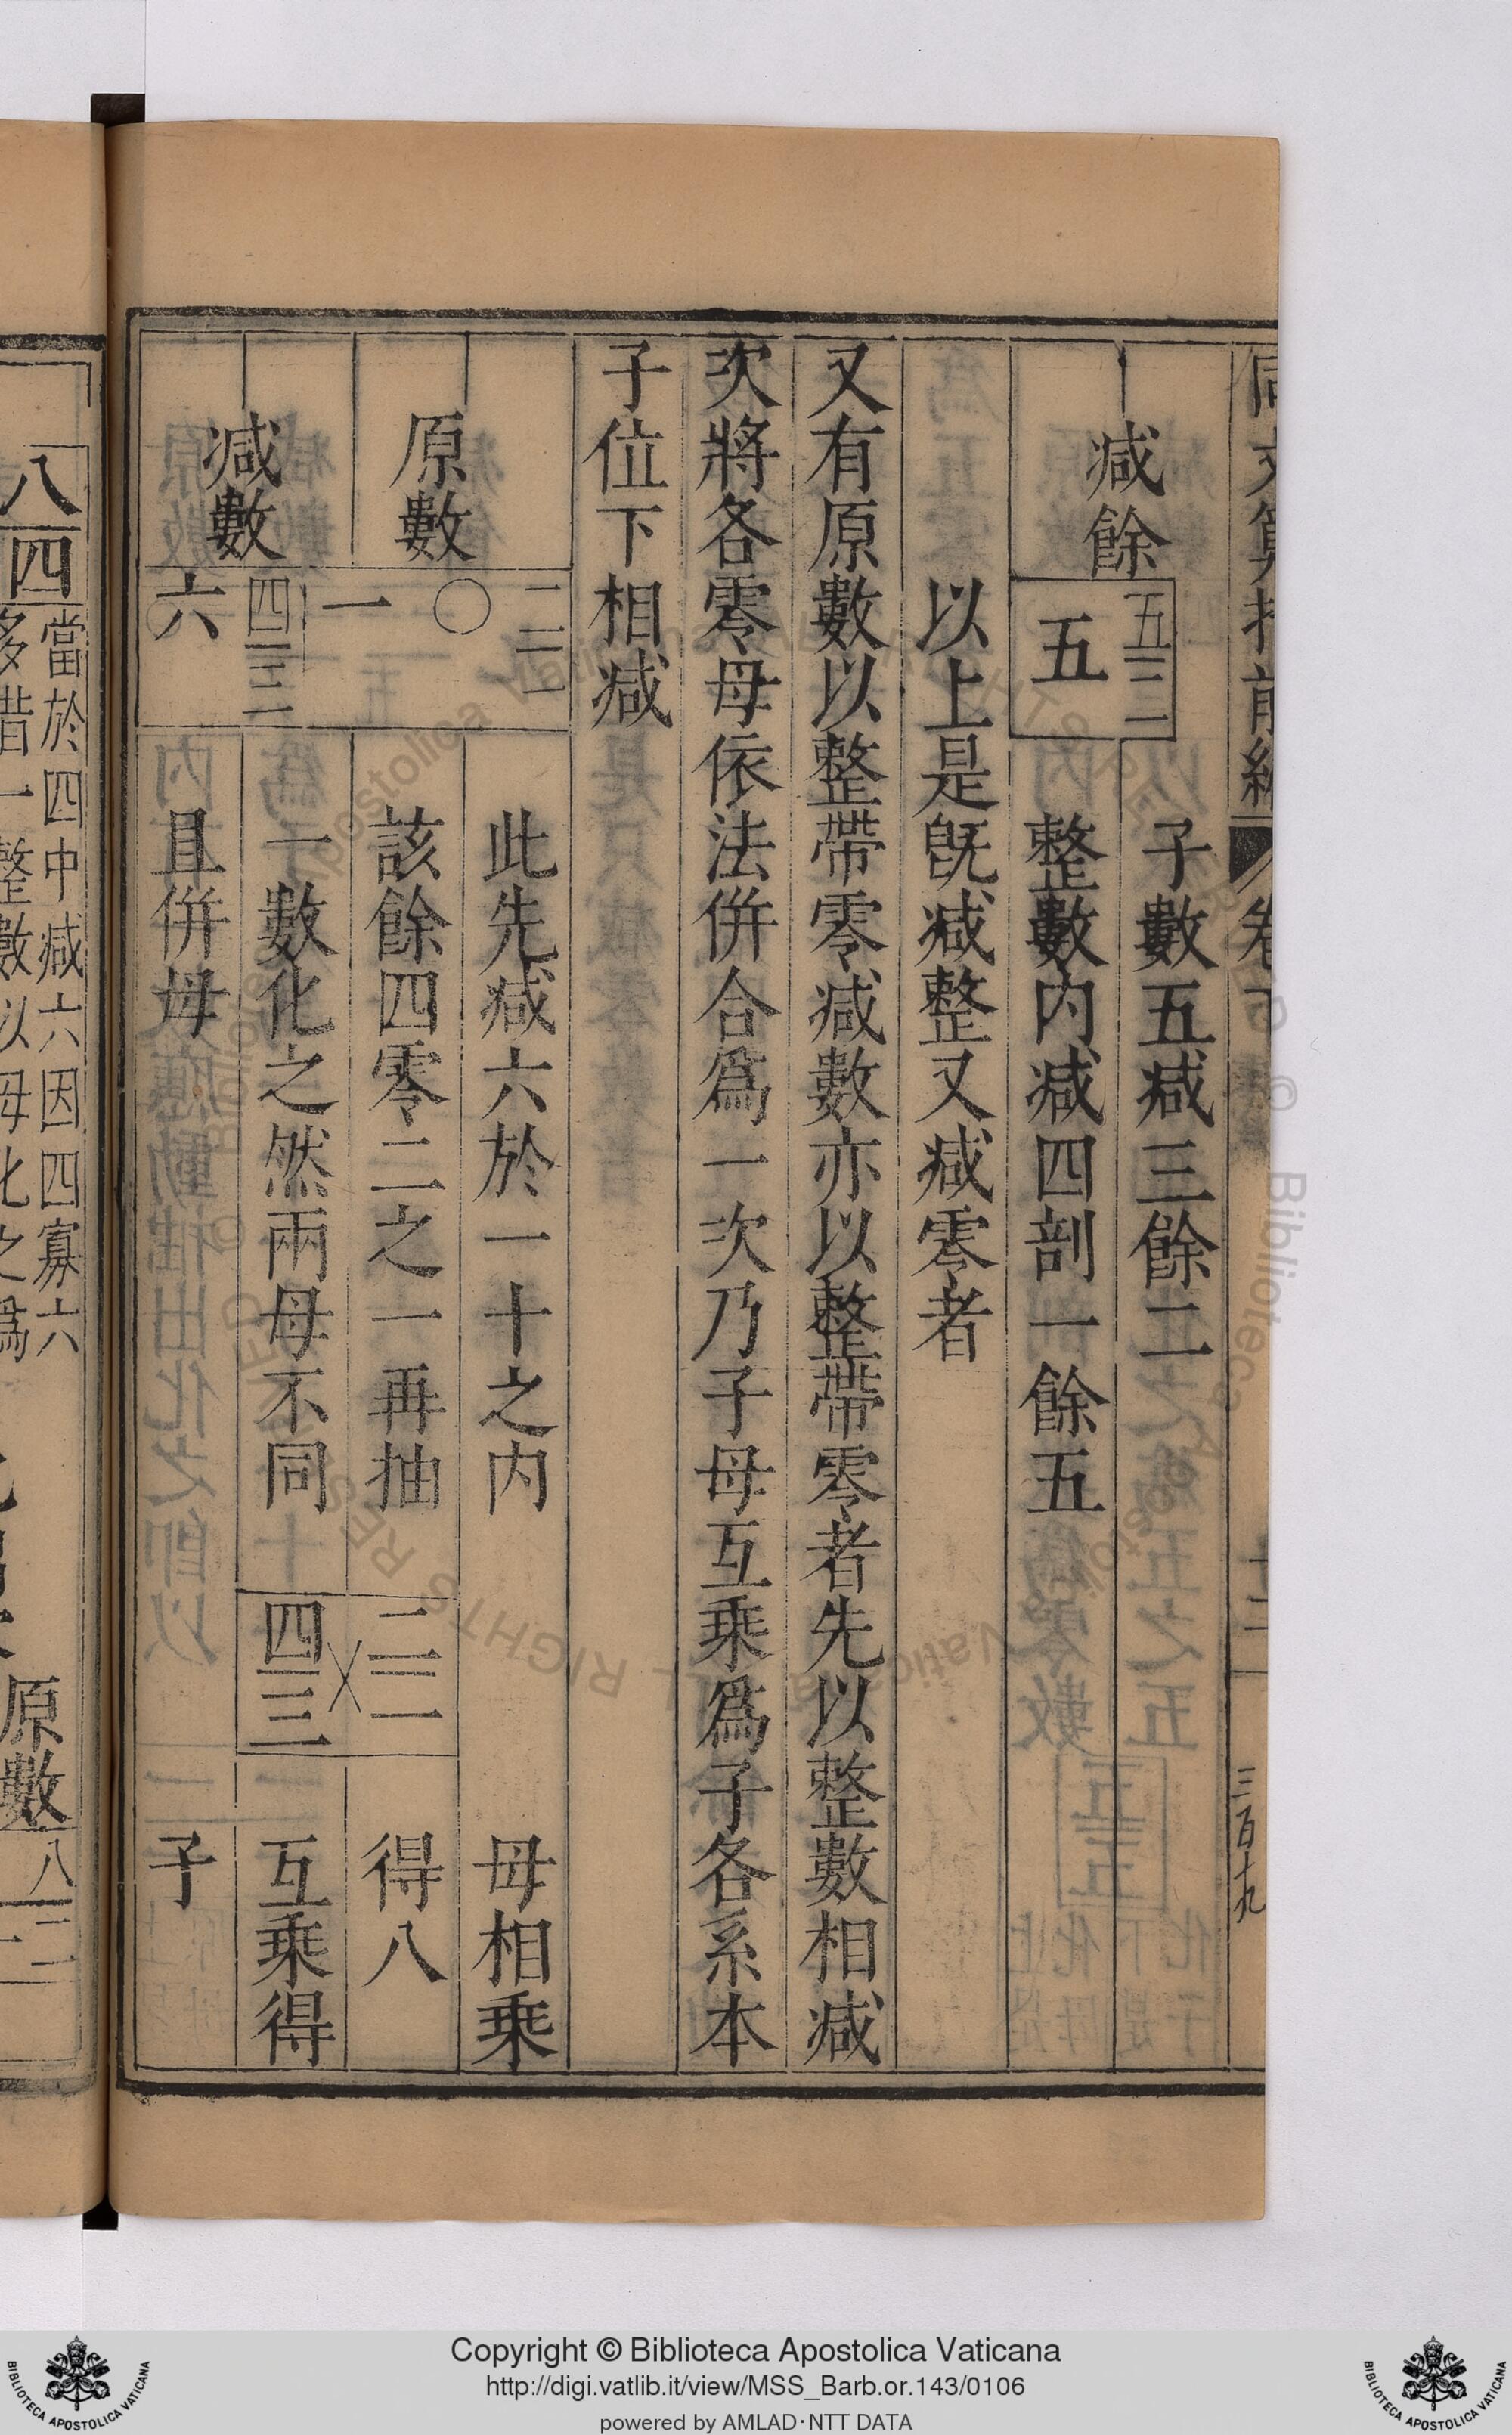 同文算指前編 卷下 十二 三百十九
減餘 五 三 二 子數五減三餘二
五 整數內減四剖一餘五
以上是旣減整又減零者
又有原數以整帶零減數亦以整帶零者先以整數相減
次將各零母依法併合爲一次乃子母互乘爲子各系本
子位下相減
原數 一〇 二 一 此先減六於一十之內 母相乘
該餘四零二之一再抽 二 三 得八
減數 六 四 三 一數化之然兩母不同 四 三 互乘得
且併母 子
八 四 當於四中減六因四寡六
多借一整數以母化之爲
原數 八
Copyright © Biblioteca Apostolica Vaticana
http://digi.vatlib.it/view/MSS_Barb.or.143/0106
powered by AMLAD·NTT DATA
BIBLIOTECA APOSTOLICA VATICANA
BIBLIOTECA APOSTOLICA VATICANA